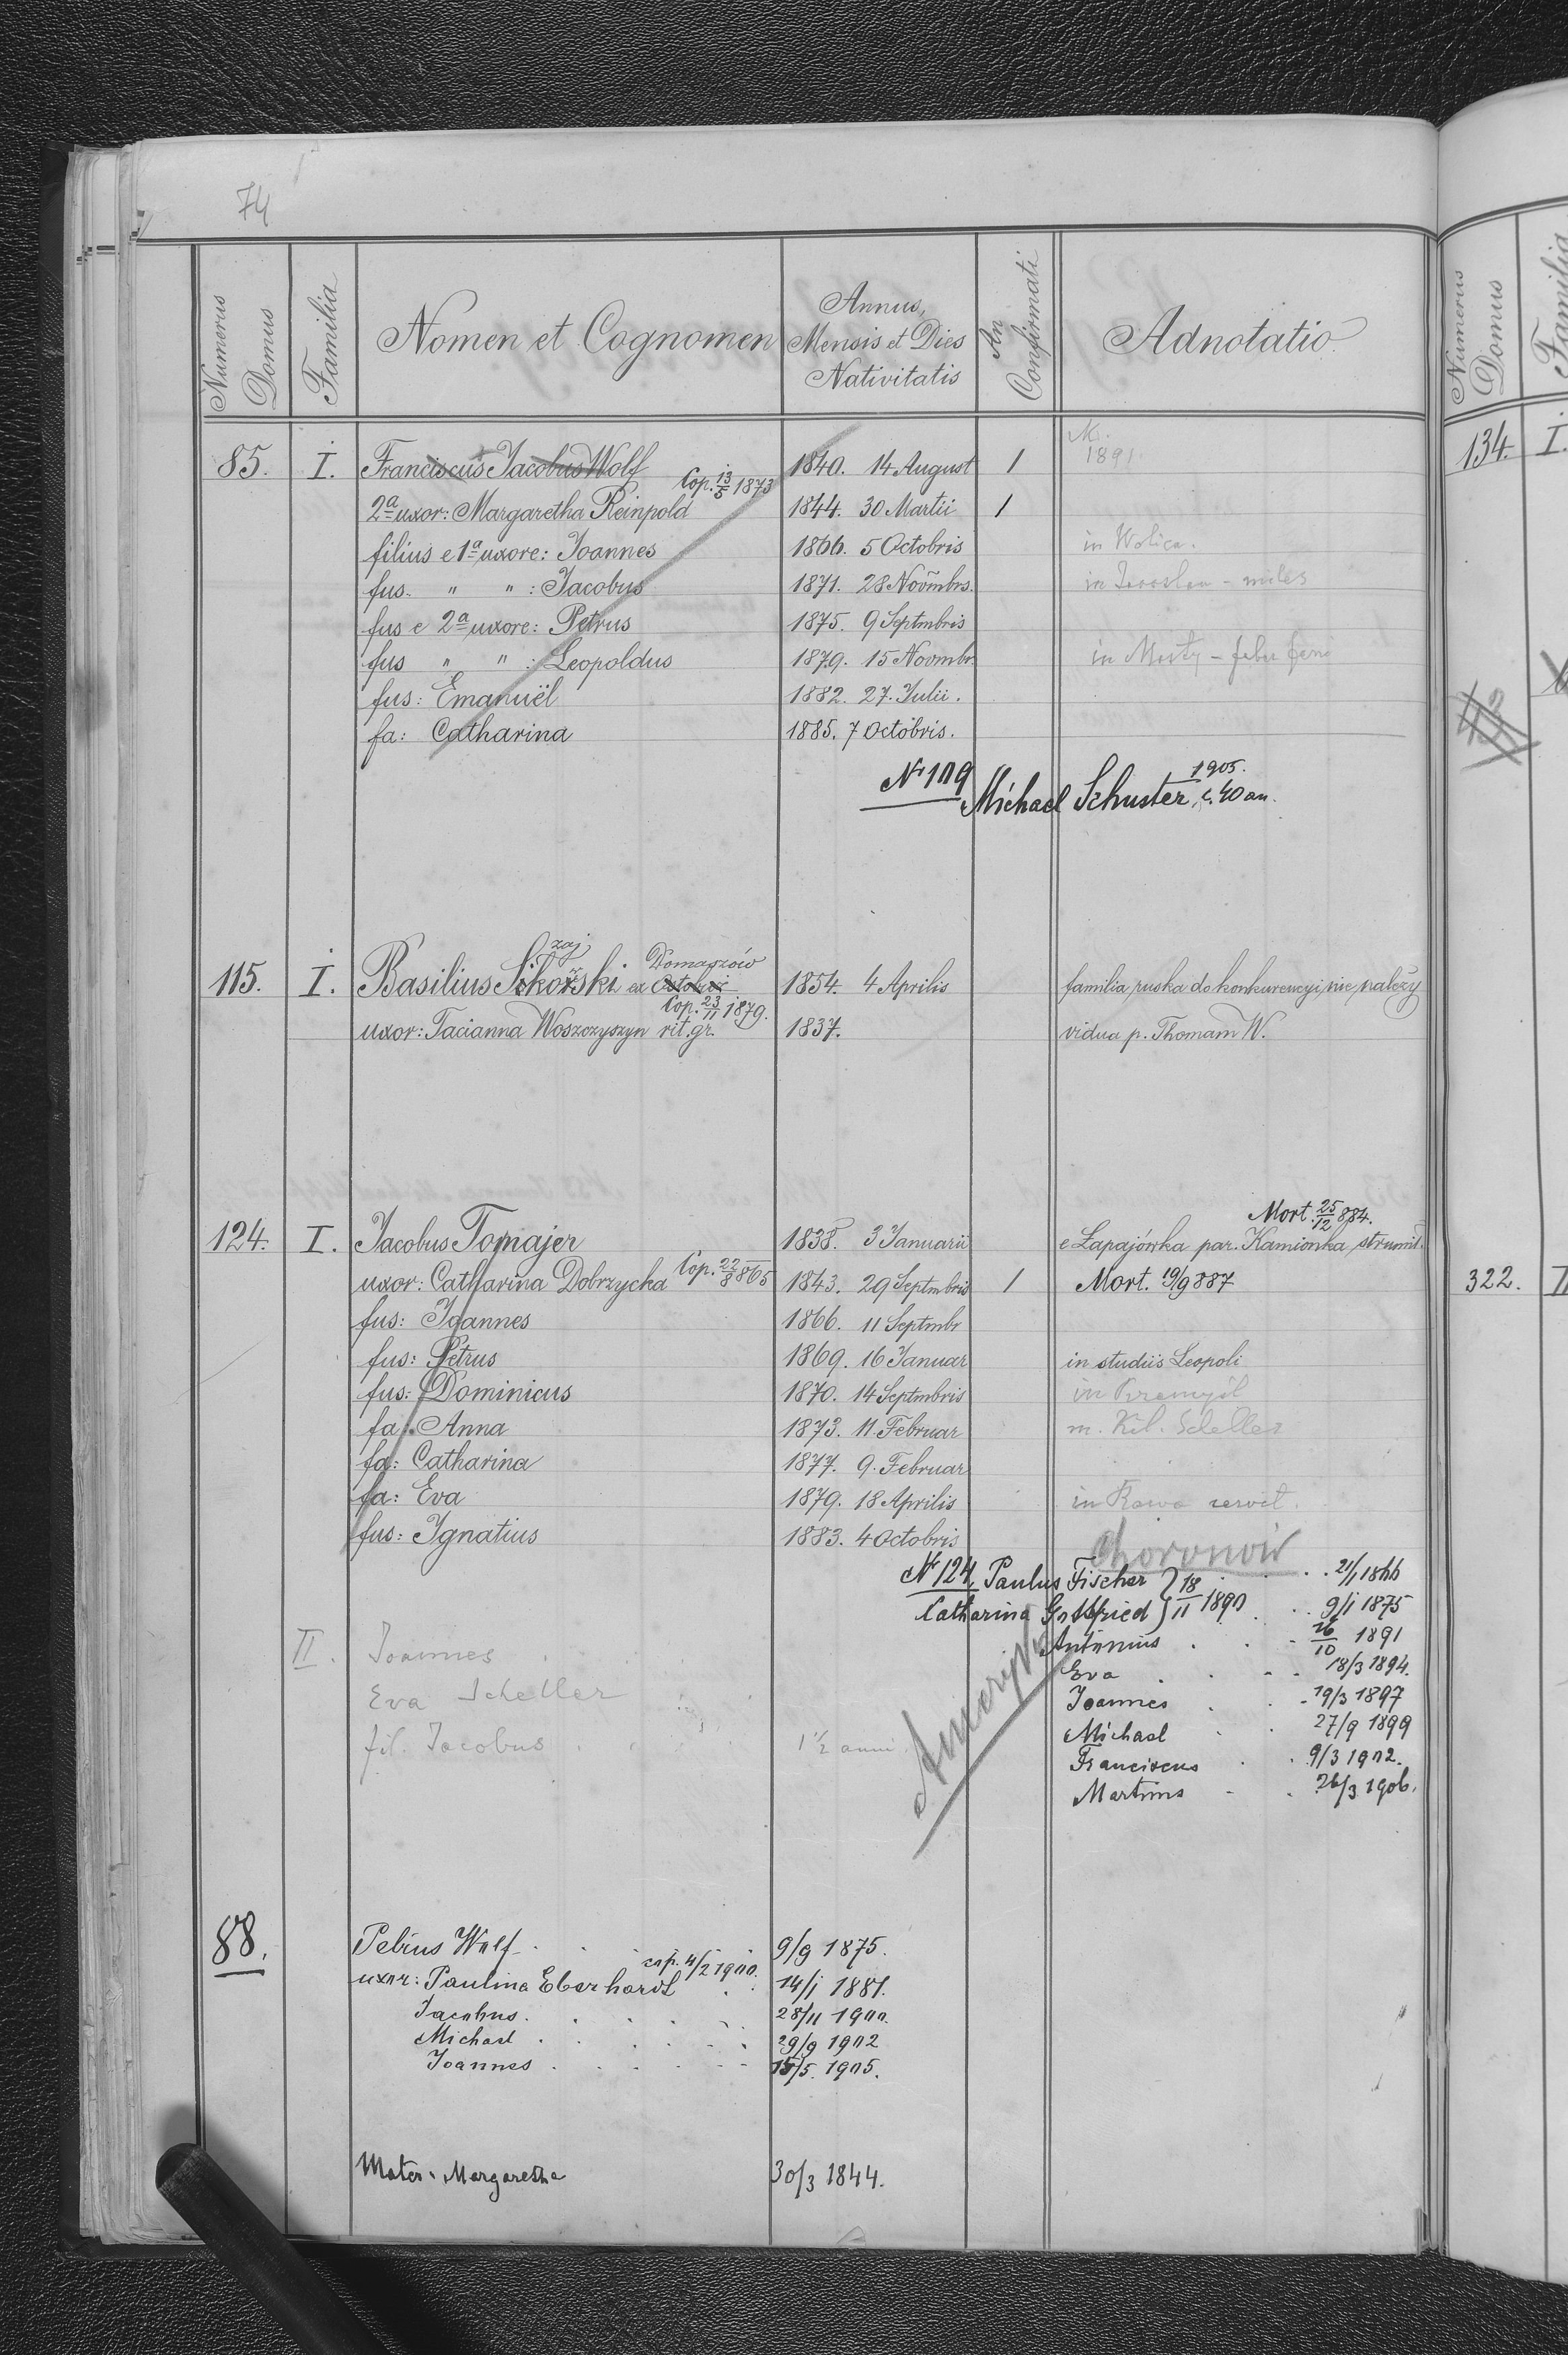 74
Numerus Domus
Familia
Nomen et Cognomen
Annus, Mensis et Dies Nativitatis
An Confirmati
Adnotatio
85. I. Franciscus Jacobus Wolf 1840. 14 August 1 M. 1891
Cop. 13/5 1873
2a uxor: Margaretha Reinpold 1844. 30 Martii 1
filius e 1a uxore: Joannes 1866. 5 Octobris in Wolica.
fus. " " : Jacobus 1871. 28 Novmbrs. in Jaroslau - miles
fus e 2a uxore: Petrus 1875. 9 Septmbris
fus " " : Leopoldus 1879. 15 Novmbr in Mosty - faber
fus: Emanuël 1882. 27. Julii.
fa: Catharina 1885. 7 Octobris.
No 109 Michael Schuster, c. 40 an. 1905.
115. I. Basilius Sikorski ex Domaszów 1854. 4 Aprilis familia ruska do konkurencyi nie należy
zaj
Cop. 23/11 1879.
uxor: Tacianna Woszczyszyn rit. gr. 1837. vidua p. Thomam W.
Mort. 25/12 884.
124. I. Jacobus Tomajer 1838. 3 Januarii e Łapajówka par. Kamionka strumił.
uxor: Catharina Dobrzycka Cop. 22/8 865 1843. 29 Septmbris 1 Mort. 19/9 887
fus: Joannes 1866. 11 Septmbr
fus: Petrus 1869. 16 Januar in studiis Leopoli
fus: Dominicus 1870. 14 Septmbris in Przemyśl
fa: Anna 1873. 11 Februar m. Kil. Scheller
fa: Catharina 1877. 9. Februar
fa: Eva 1879. 18 Aprilis in Rawa servit.
fus: Ignatius 1883. 4 Octobris
Choronow
No 124, Paulus Fischer } 18/11 1890 21/1 1866
Catharina Gottfried 9/1 1875
Antonius 26/10 1891
Eva 18/3 1894.
Joannes 19/3 1897
Michael 27/9 1899
Franciscus 9/3 1902.
Martinus 26/3 1906.
II. Joannes
Eva Scheller
fil. Jacobus 1 1/2 anni
88. Petrus Wolf 9/9 1875.
cop. 4/2 1900.
uxor: Paulina Eberhardt 14/1 1881.
Jacobus. 28/11 1900.
Michael 29/9 1902
Joannes 15/5. 1905.
Mater. Margaretha 30/3 1844.
Numerus Domus
Familia
134. I.
322. II